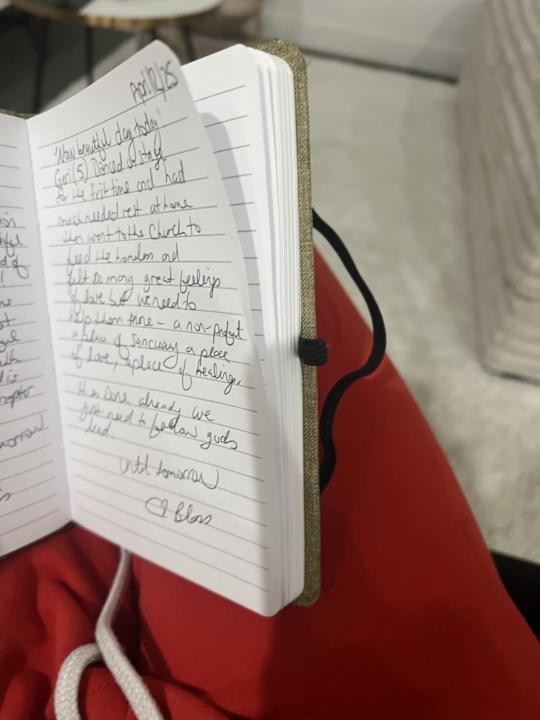 April 12/25
beautiful day today
(5) Danced on stage
for the first time and had
much needed rest at home
then went to the Church to
feed the homeless and
felt so many great feelings
of love but we need to
help them more - a non-profit
a place of Sanctuary a place
of love, a place of healing.
Done already we
just need to follow gods
lead.
until tomorrow
♡ Bloss
omorrow